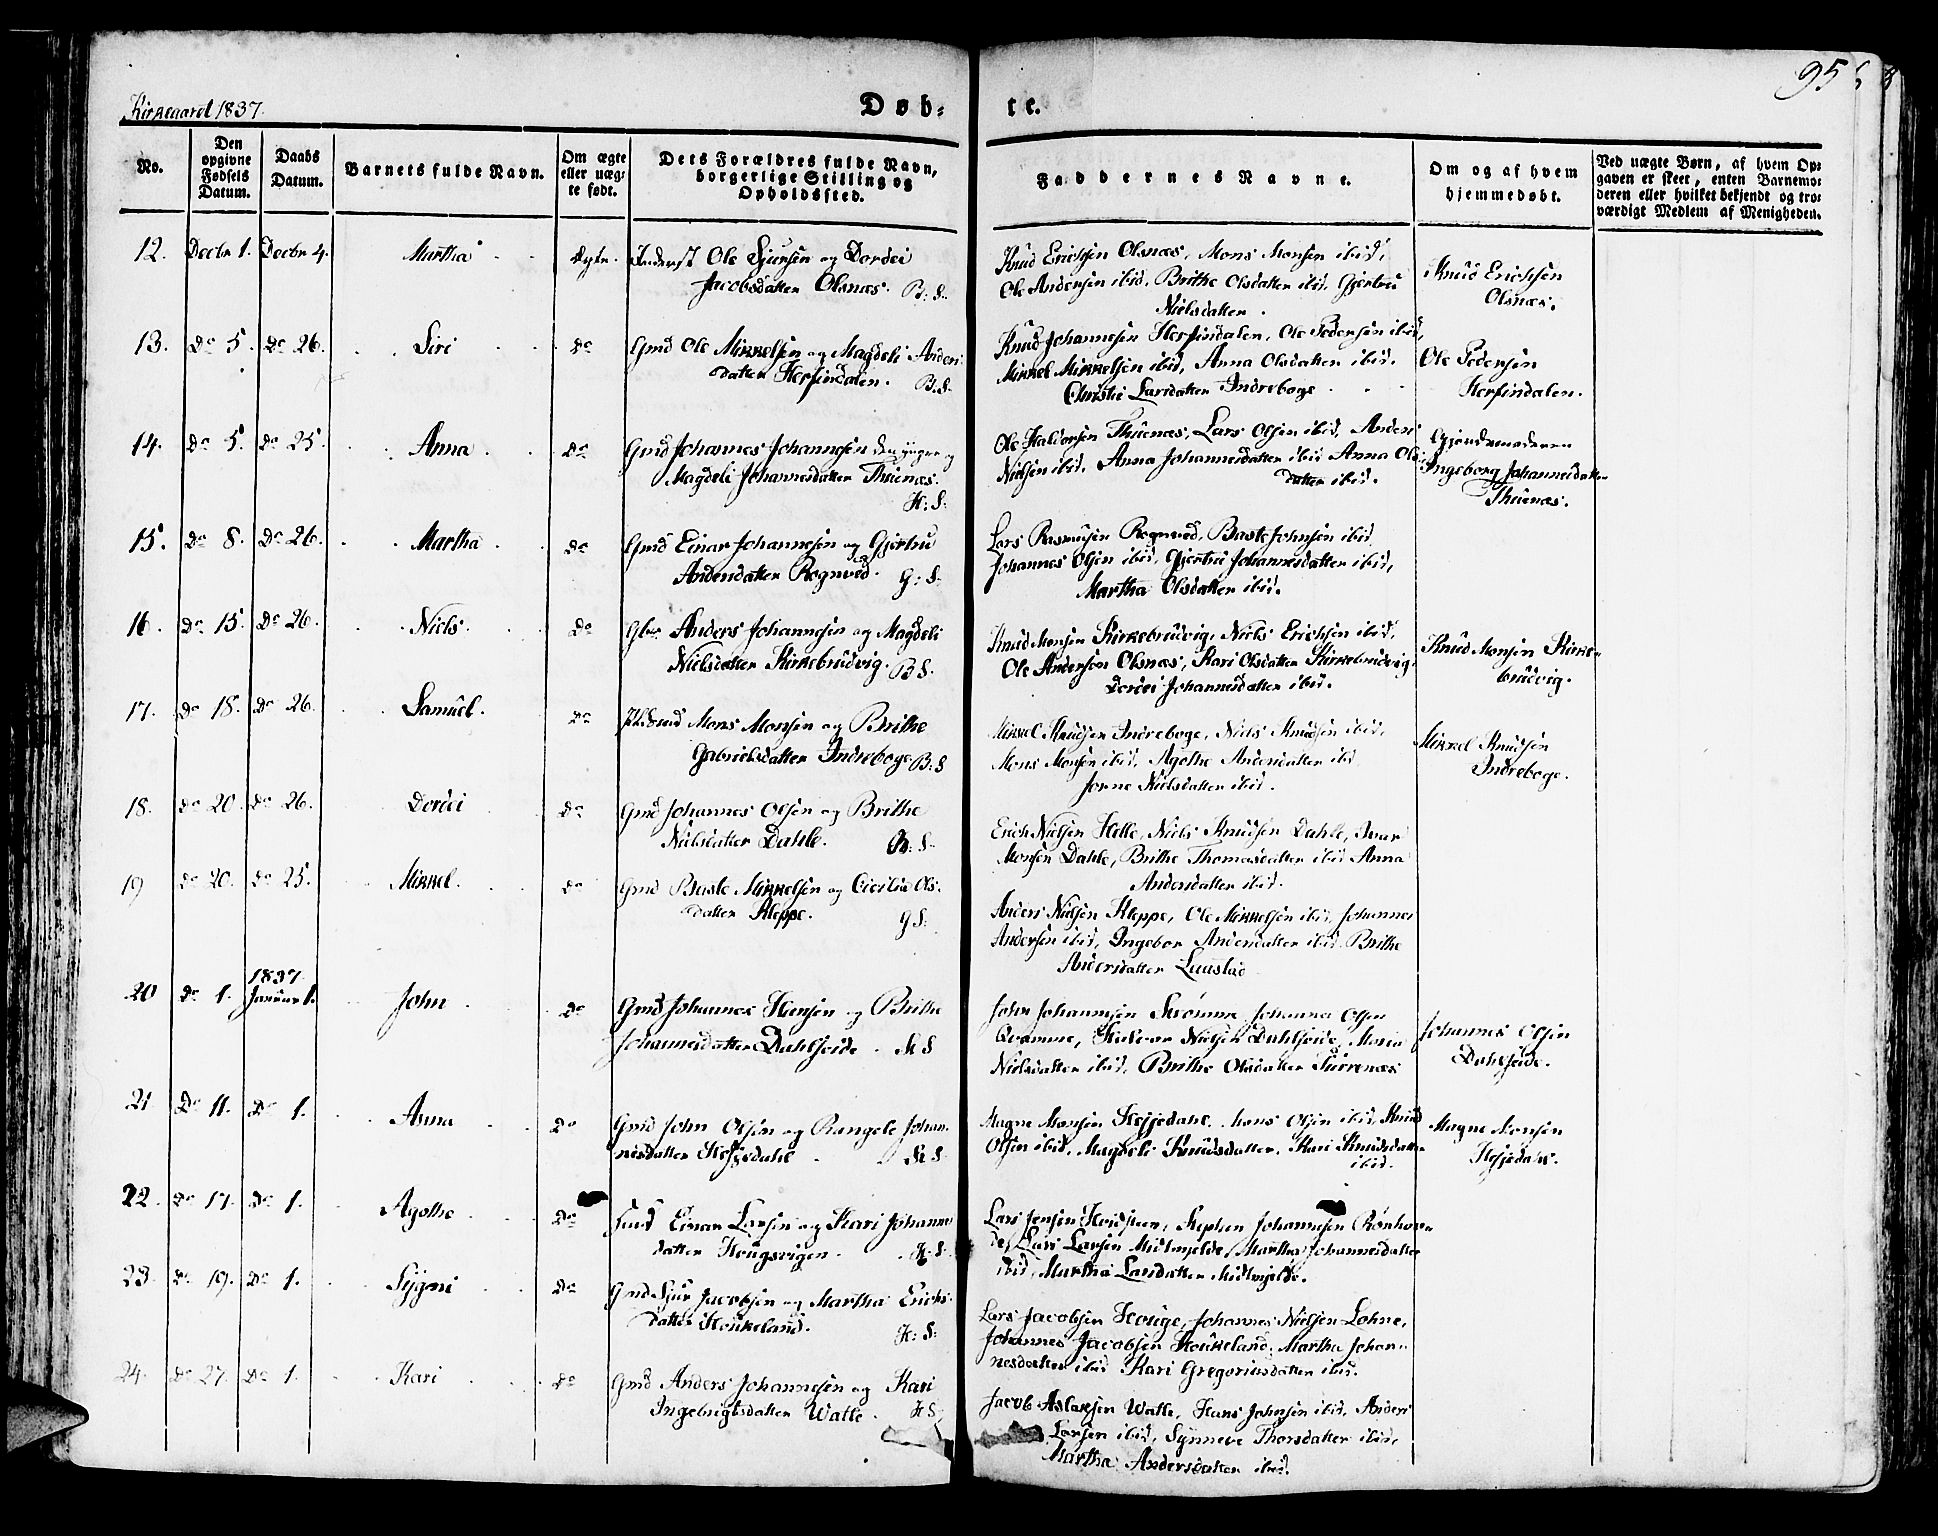 95
Kirkeaaret 1837.
Døb-
te.
No.
Den opgivne Fødsels Datum.
Daabs Datum.
Barnets fulde Navn.
Om ægte eller uæg- te født.
Dets Forældres fulde Navn, borgerlige Stilling og Opholdssted.
Faddernes Navne.
Om og af hvem hjemmedøbt.
Ved uægte Børn, af hvem Op- gaven er skeet, enten Barnemo- deren eller hvilket bekjendt og tro- værdigt Medlem af Menigheden.
12. Decbr 1. Decbr 4. Martha Ægte. Inderst Ole Sjursen og Dordei
Jacobsdatter Olsnæs. B: S.
Knud Erichsen Olsnæs, Mons Monsen ibid,
Ole Andersen ibid, Brithe Olsdatter ibid, Gjertru
Nielsdatter.
Knud Erichsen
Olsnæs.
13. Do 5. Do 26. Siri Do Gmd Ole Mikkelsen og Magdeli Anders-
datter Herfindalen. B.S.
Knud Johannesen Herfindalen, Ole Pedersen ibid,
Mikkel Mikkelsen ibid, Anna Olsdatter ibid.
Christi Larsdatter Indreboge
Ole Pedersen
Herfindalen.
14. Do 5. Do 25. Anna Do Gmd Johannes Johannesen den yngre og
Magdeli Johannesdatter Thuenæs.
H: S.
Ole Haldorsen Thuenæs, Lars Olsen ibid, Anders
Nielsen ibid. Anna Johannesdatter ibid Anna Ols-
datter ibid.
Gjordemoderen
Ingeborg Johannesdatter
Thuenæs.
15. Do 8. Do 26. Martha Do Gmd Einar Johannesen og Gjertru
Andersdatter Rognved. G: S.
Lars Rasmusen Rognved, Baste Johnsen ibid
Johannes Olsen ibid, Gjertru Johannesdatter ibid,
Martha Olsdatter ibid.
16. Do 15. Do 26. Niels Do Anders Johannesen og Magdeli
Nielsdatter Kirkebrudvig. B S.
Knud Monsen Kirkebrudvig, Niels Erichsen ibid,
Ole Andersen Olsnæs, Kari Olsdatter Kirkebrudvig
Dordei Johannesdatter ibid.
Knud Monsen Kirke-
brudvig.
17. Do 18. Do 26. Samuel. Do Mons Monsen og Brithe
Gabrielsdatter Indreboge B: S
Mikkel Knudsen Indreboge, Niels Knudsen ibid,
Mons Monsen ibid, Agothe Andersdatter ibid
Jorne Nielsdatter ibid.
Mikkel Knudsen
Indreboge.
18. Do 20. Do 26. Dordei Do Gmd Johannes Olsen og Brithe
Nielsdatter Dahle. B: S.
Erich Nielsen Helle, Niels Knudsen Dahle, Iver
Monsen Dahle, Brithe Thomasdatter ibid Anna
Andersdatter ibid.
19 Do 20. Do 25. Mikkel. Do Gmd Baste Mikkelsen og Cicilia Ols-
datter Kleppe. G S:
Anders Nielsen Kleppe, Ole Mikkelsen ibid, Johannes
Andersen ibid, Ingebor Andersdatter ibid. Brithe
Andersdatter
20 Do 1. 1837 Januar 1. John Do Gmd Johannes Hansen og Brithe
Johannesdatter Dahlseide. St S
John Johannesen Skrømme, Johannes Olsen
Qvamme, Haldor Nielsen Dahlseide, Maria
Nielsdatter ibid, Brithe Olsdatter
Johannes Olsen
Dahlseide.
21 Do 11. Do 1. Anna Do Gmd John Olsen og Rangele Johan-
nesdatter Hesjedahl St S.
Magne Monsen Hesjedahl. Mons Olsen ibid, Knud
Olsen ibid. Magdeli Knudsdatter. Kari Knudsdatter
ibid.
Magne Monsen
Hesjedahl.
22. Do 17. Do 1. Agothe Do Einar Larsen og Kari Johannes-
datter Hougsvigen. H: S.
Lars Jensen Stephen Johannesen Rønhov-
de, Lars Larsen Midtmjelde, Martha Johannesdatter
ibid, Martha Larsdatter Midtmjelde.
23. Do 19. Do 1. Sygni Do Gmd Sjur Jacobsen og Martha Erichs-
datter Houkeland. H: S:
Lars Jacobsen Houge, Johannes Nielsen Lohne,
Johannes Jacobsen Houkeland, Martha Johan-
nesdatter ibid Kari Gregoriusdatter ibid.
24. Do 27. Do 1. Kari Do Gmd Anders Johannesen og Kari
Ingebrigtsdatter Watle. H S.
Jacob Aslaksen Watle, Hans Johnsen ibid, Anders
Larsen ibid, Synneve Thorsdatter ibid,
Martha Andersdatter ibid.